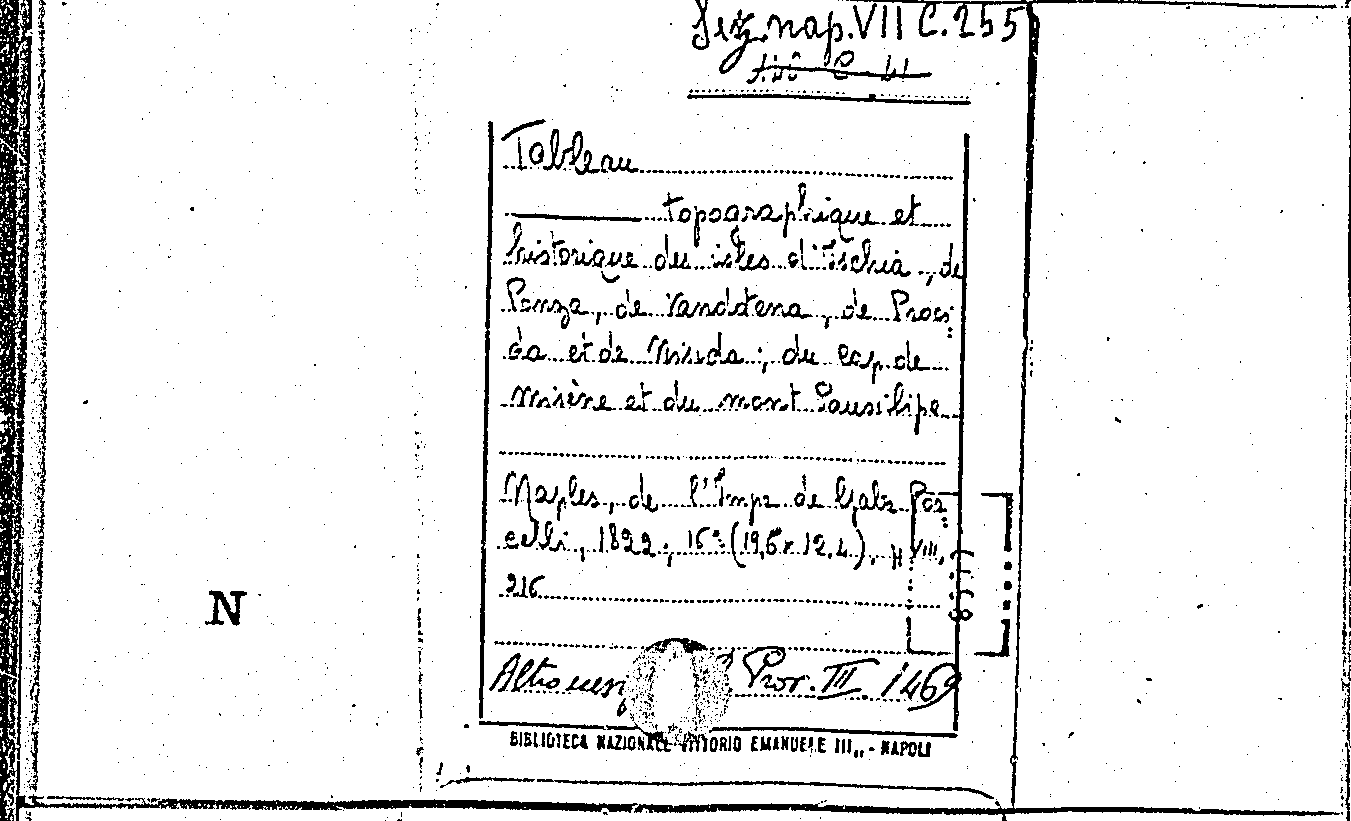 Sez. nap. VII C. 255
Tableau
topographique et
historique des isles d'Ischia, de
Ponza, de Vandotena, de Proci:
da et de Nisida; du cap de
Misène et du mont Pausilipe
Naples, de l'Impr de Gabr Por:
celli, 1822; 16° (19,6 x 12,4). pp VIII,
216
N
Altro es Prov. III. 1469
BIBLIOTECA NAZIONALE VITTORIO EMANUELE III,, - NAPOLI